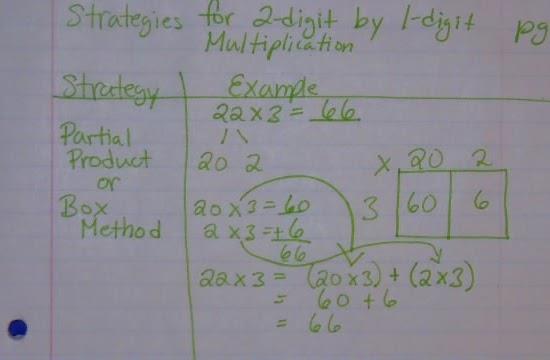 Strategies for 2-digit by 1-digit pg
Multiplication
Strategy Example
22 x 3 = 66
Partial
Product
or
Box
Method
20 2
20 x 3 = 60
2 x 3 = +6
66
x 20 2
3 60 6
22 x 3 = (20 x 3) + (2 x 3)
= 60 + 6
= 66